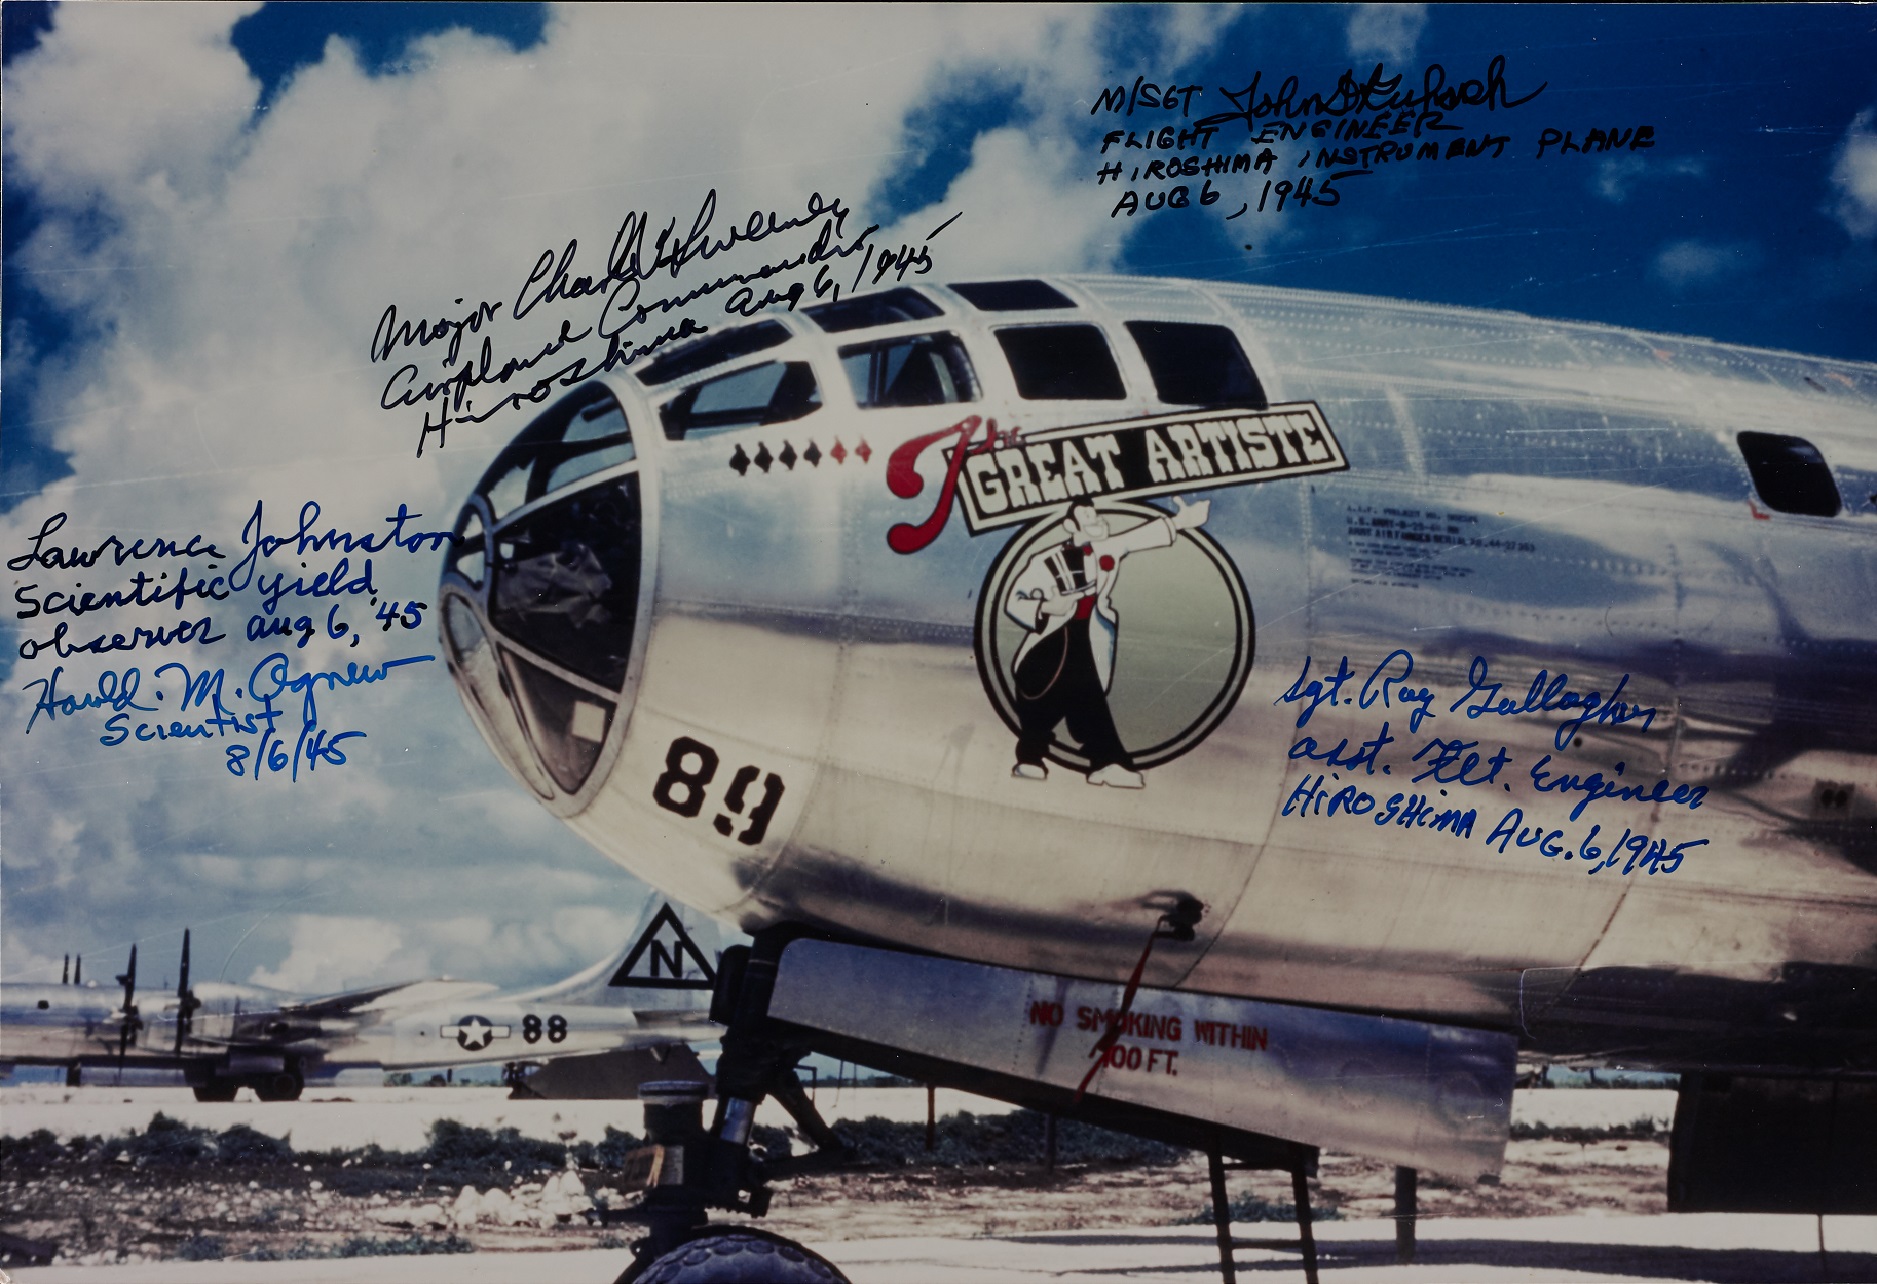 M/SGT John D Kuharek
FLIGHT ENGINEER
HIROSHIMA INSTRUMENT PLANE
AUG 6, 1945
Major Charles W Sweeney
Airplane Commander
Hiroshima Aug 6, 1945
The
GREAT ARTISTE
Lawrence Johnston
Scientific yield
observer Aug 6, '45
Harold. M. Agnew
Scientist
8/6/45
Sgt. Ray Gallagher
asst. Flt. Engineer
HIROSHIMA AUG. 6, 1945
89
N
88
NO SMOKING WITHIN
100 FT.